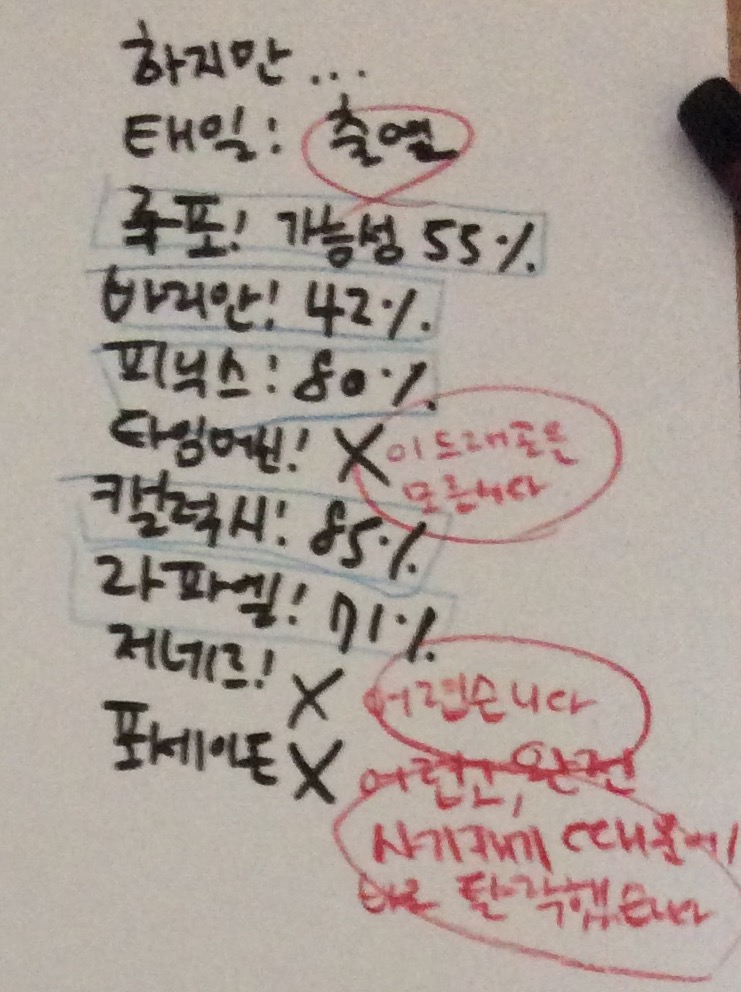 하지만...
태일: 출연
쿠포! 가능성 55%
바리안! 42%
피닉스! 80%
타임머신! X 이 드래곤은
모릅니다
캘럭시! 85%
라파엘! 71%
저네르! X 어렵습니다
포세이돈 X 어렵고, 완전
사기캐기 때문에
바로 탈락했습니다